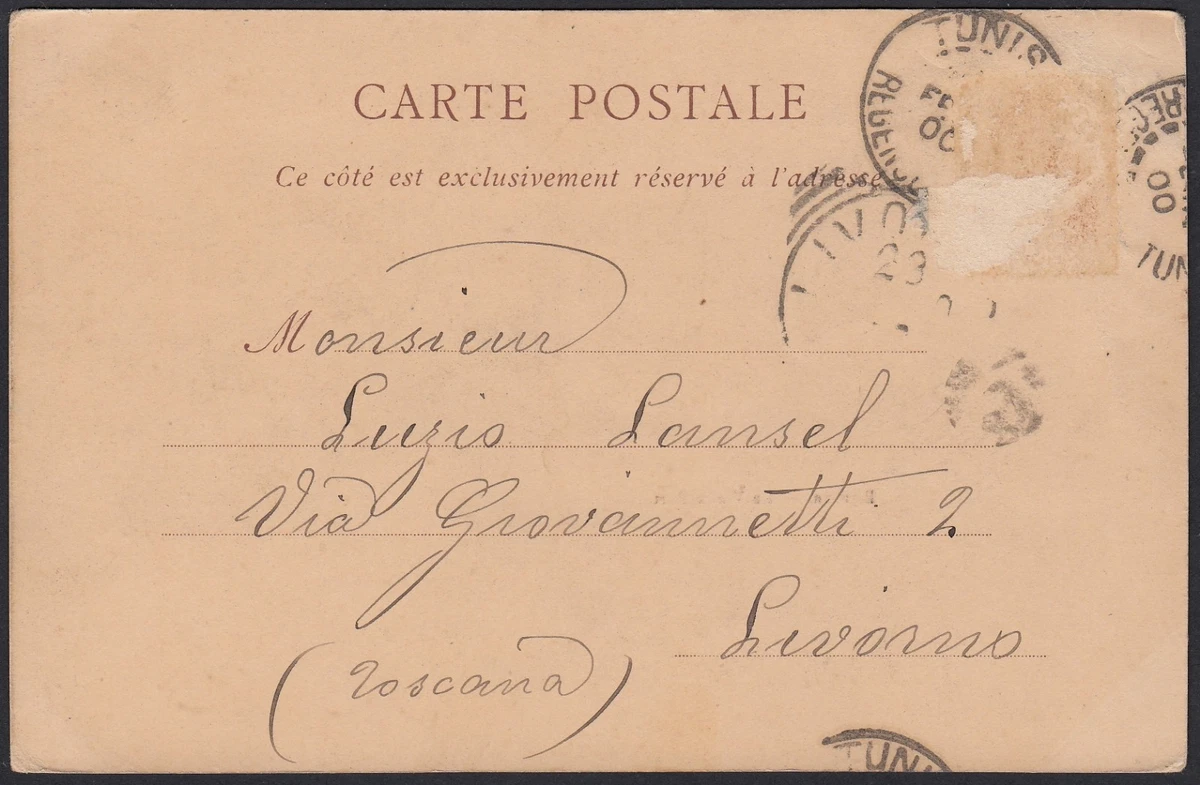 CARTE POSTALE
Ce côté est exclusivement réservé à l'adresse
TUNIS
REGENCE
00
TUN
00
LIVO
23
Monsieur
Luzio Lansel
Via Giovannetti 2
Livorno
(Toscana)
TUNI